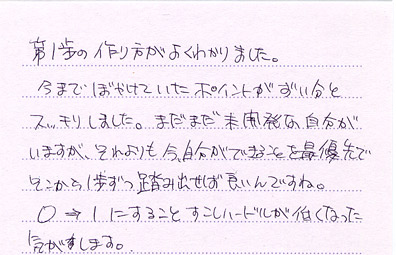 第1歩の作り方がよくわかりました。
今までぼやけていたポイントがずい分と
スッキリしました。まだまだ未開発な自分が
いますが、それよりも今、自分ができることを最優先で
そこから1歩ずつ踏み出せば良いんですね。
0⇒1にすること すこしハードルが低くなった
気がします。